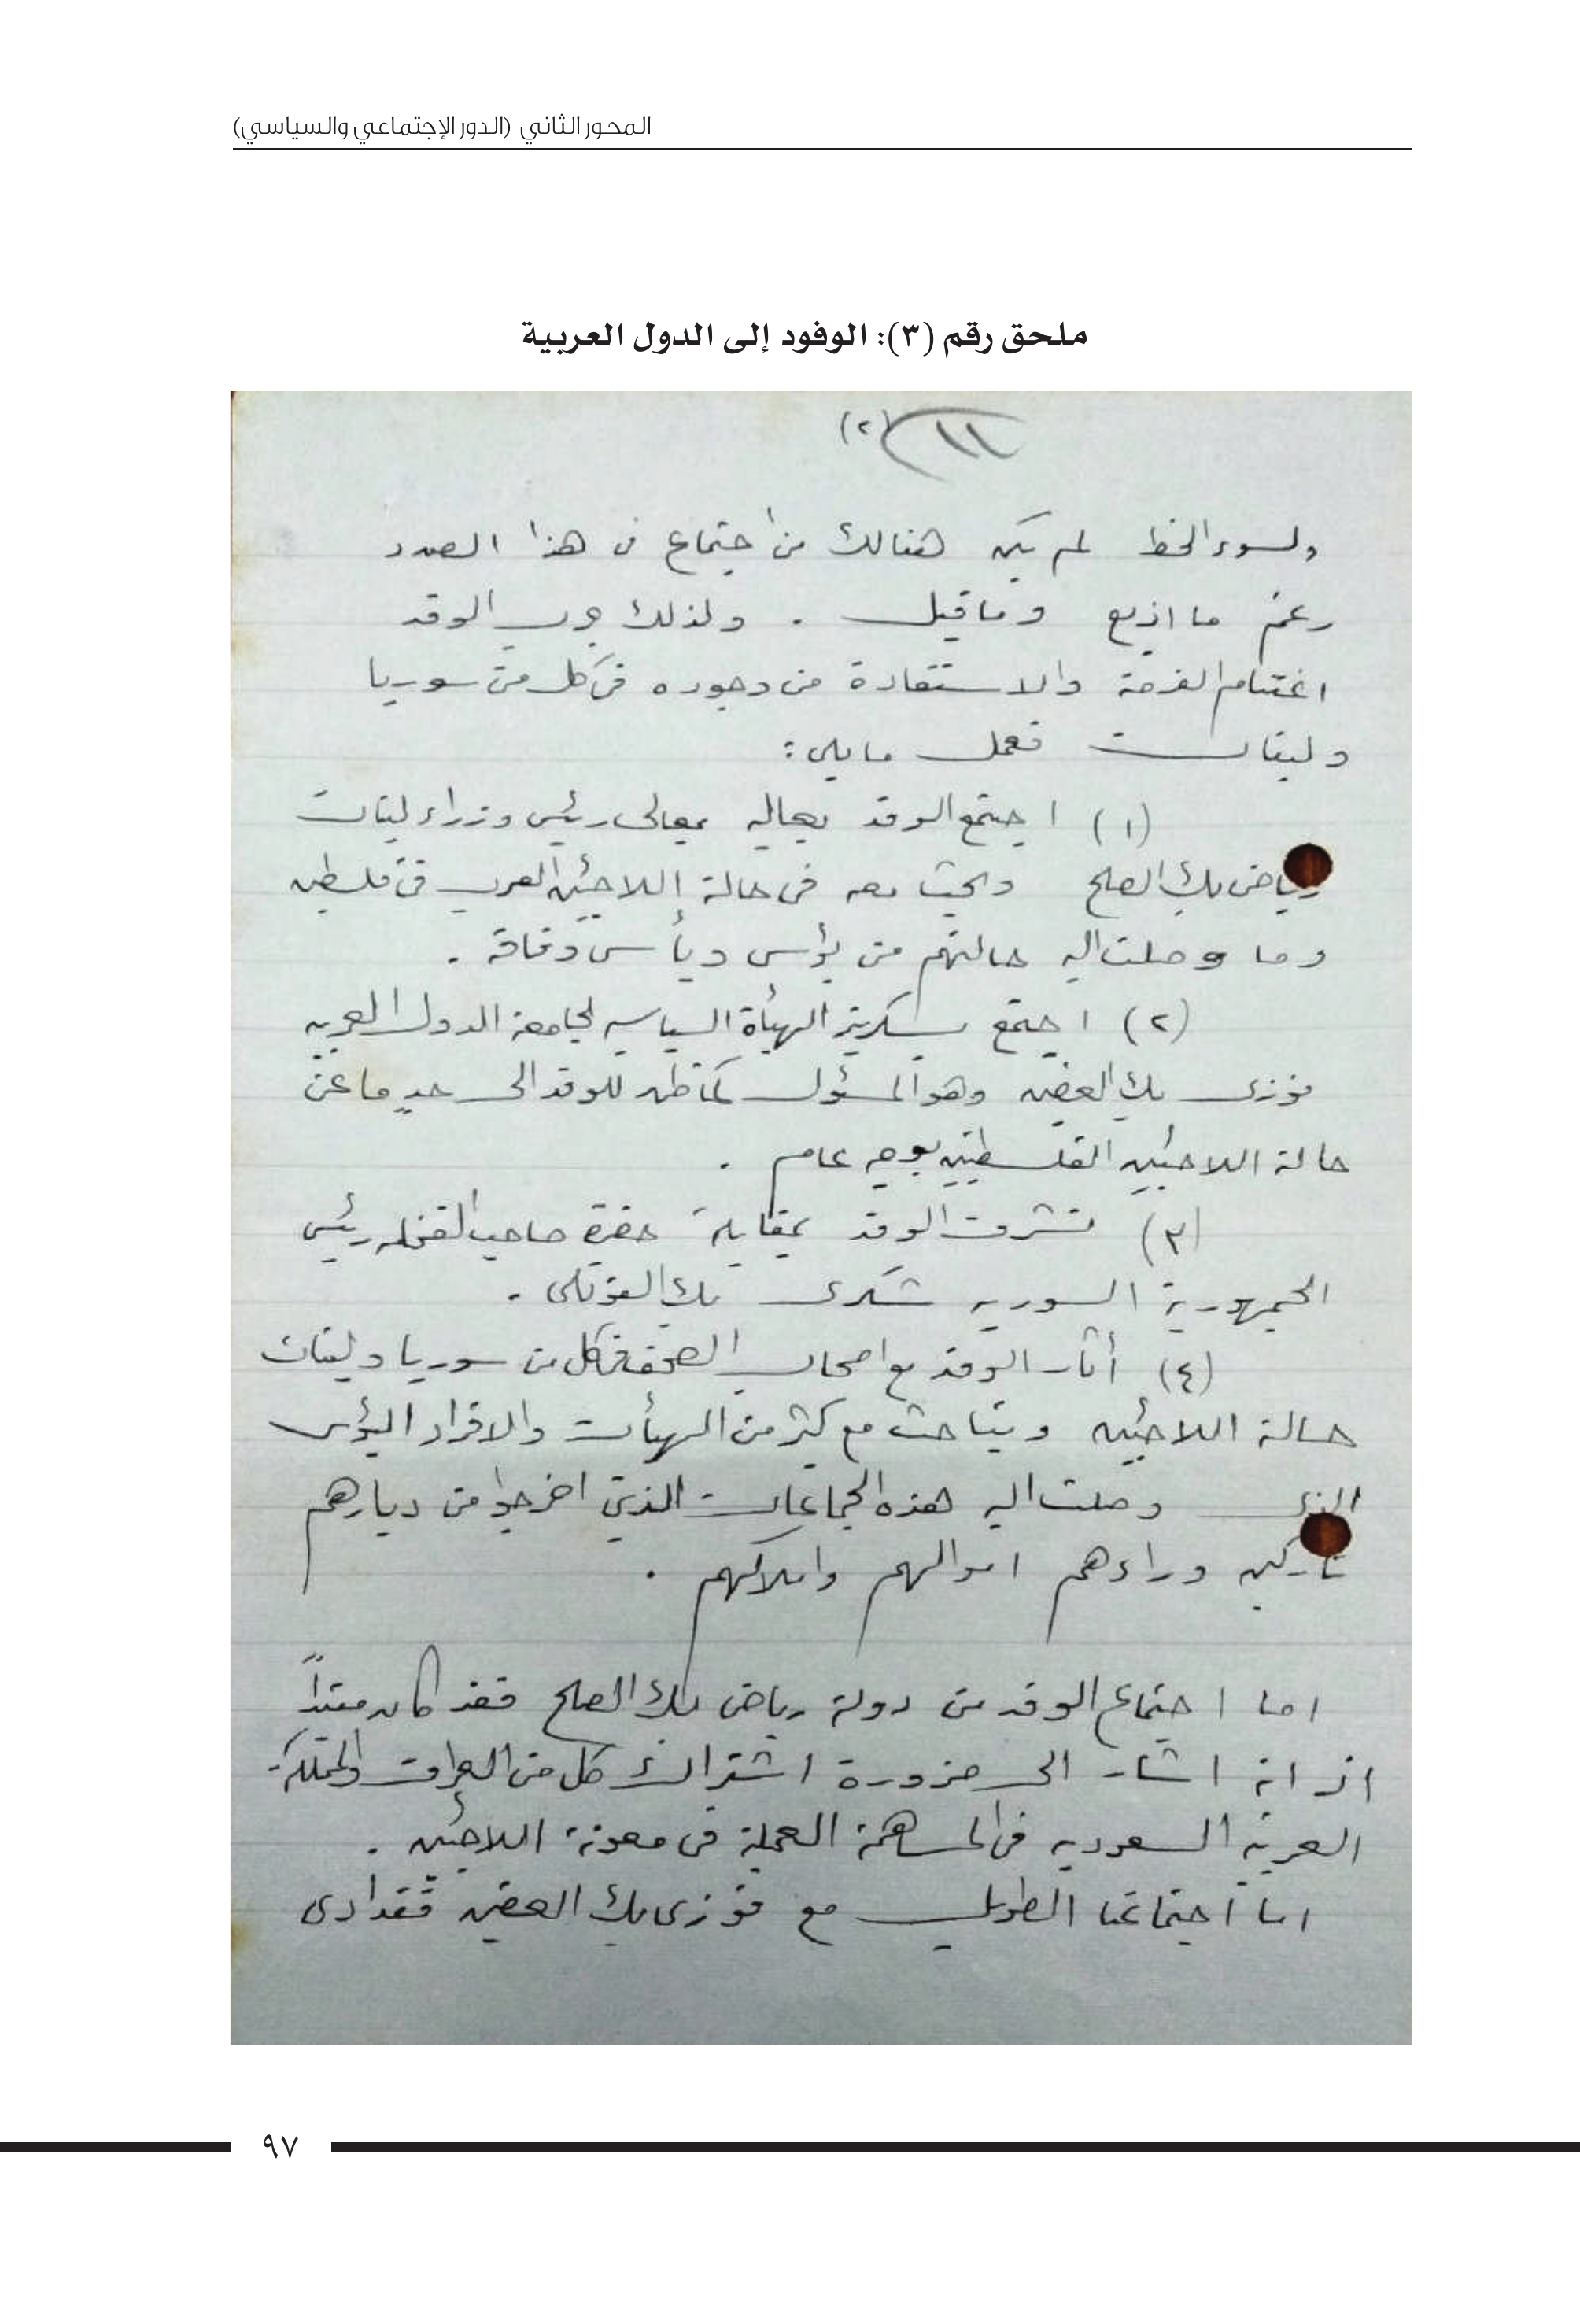 المحور الثاني (الدور الإجتماعي والسياسي)
ملحق رقم (٣): الوفود إلى الدول العربية
١١ (٢)
ولسوء الحظ لم يكن هنالك من اجتماع في هذا الصدد
رغم ما اذيع وما قيل . ولذلك الوفد
اغتنام الفرصة والاستفادة من وجوده في كل من سوريا
ولبنان فعمل ما يلي :
(١) اجتمع الوفد بمعالي رئيس وزراء لبنان
رياض بك الصلح وبحث معه في حالة اللاجئين العرب في فلسطين
وما وصلت اليه حالتهم من بؤس ويأس وفاقة .
(٢) اجتمع بسكرتير الهيأة السياسيه لجامعة الدول العربيه
فوزي بك الغصين وهو المسؤول كما ظهر للوفد الى حدٍ ما عن
حالة اللاجئين الفلسطينيين بوجه عام .
(٣) تشرف الوفد بمقابلة حضرة صاحب الفخامه رئيس
الجمهورية السوريه شكري بك القوتلي .
(٤) أثار الوفد مع اصحاب الصحف في كل من سوريا ولبنان
حالة اللاجئين وتباحث مع كثير من الهيأت والافراد البؤس
الذي وصلت اليه هذه الجماعات الذين اخرجوا من ديارهم
تاركين وراءهم اموالهم واملاكهم .
اما اجتماع الوفد من دولة رياض بك الصلح فقد كان
اذ انه اشار الى ضرورة اشتراك كل من العراق والمملكة
العربية السعوديه في المساهمة العملية في معونة اللاجئين .
اما اجتماعنا الطويل مع فوزي بك الغصين فقد ادى
٩٧